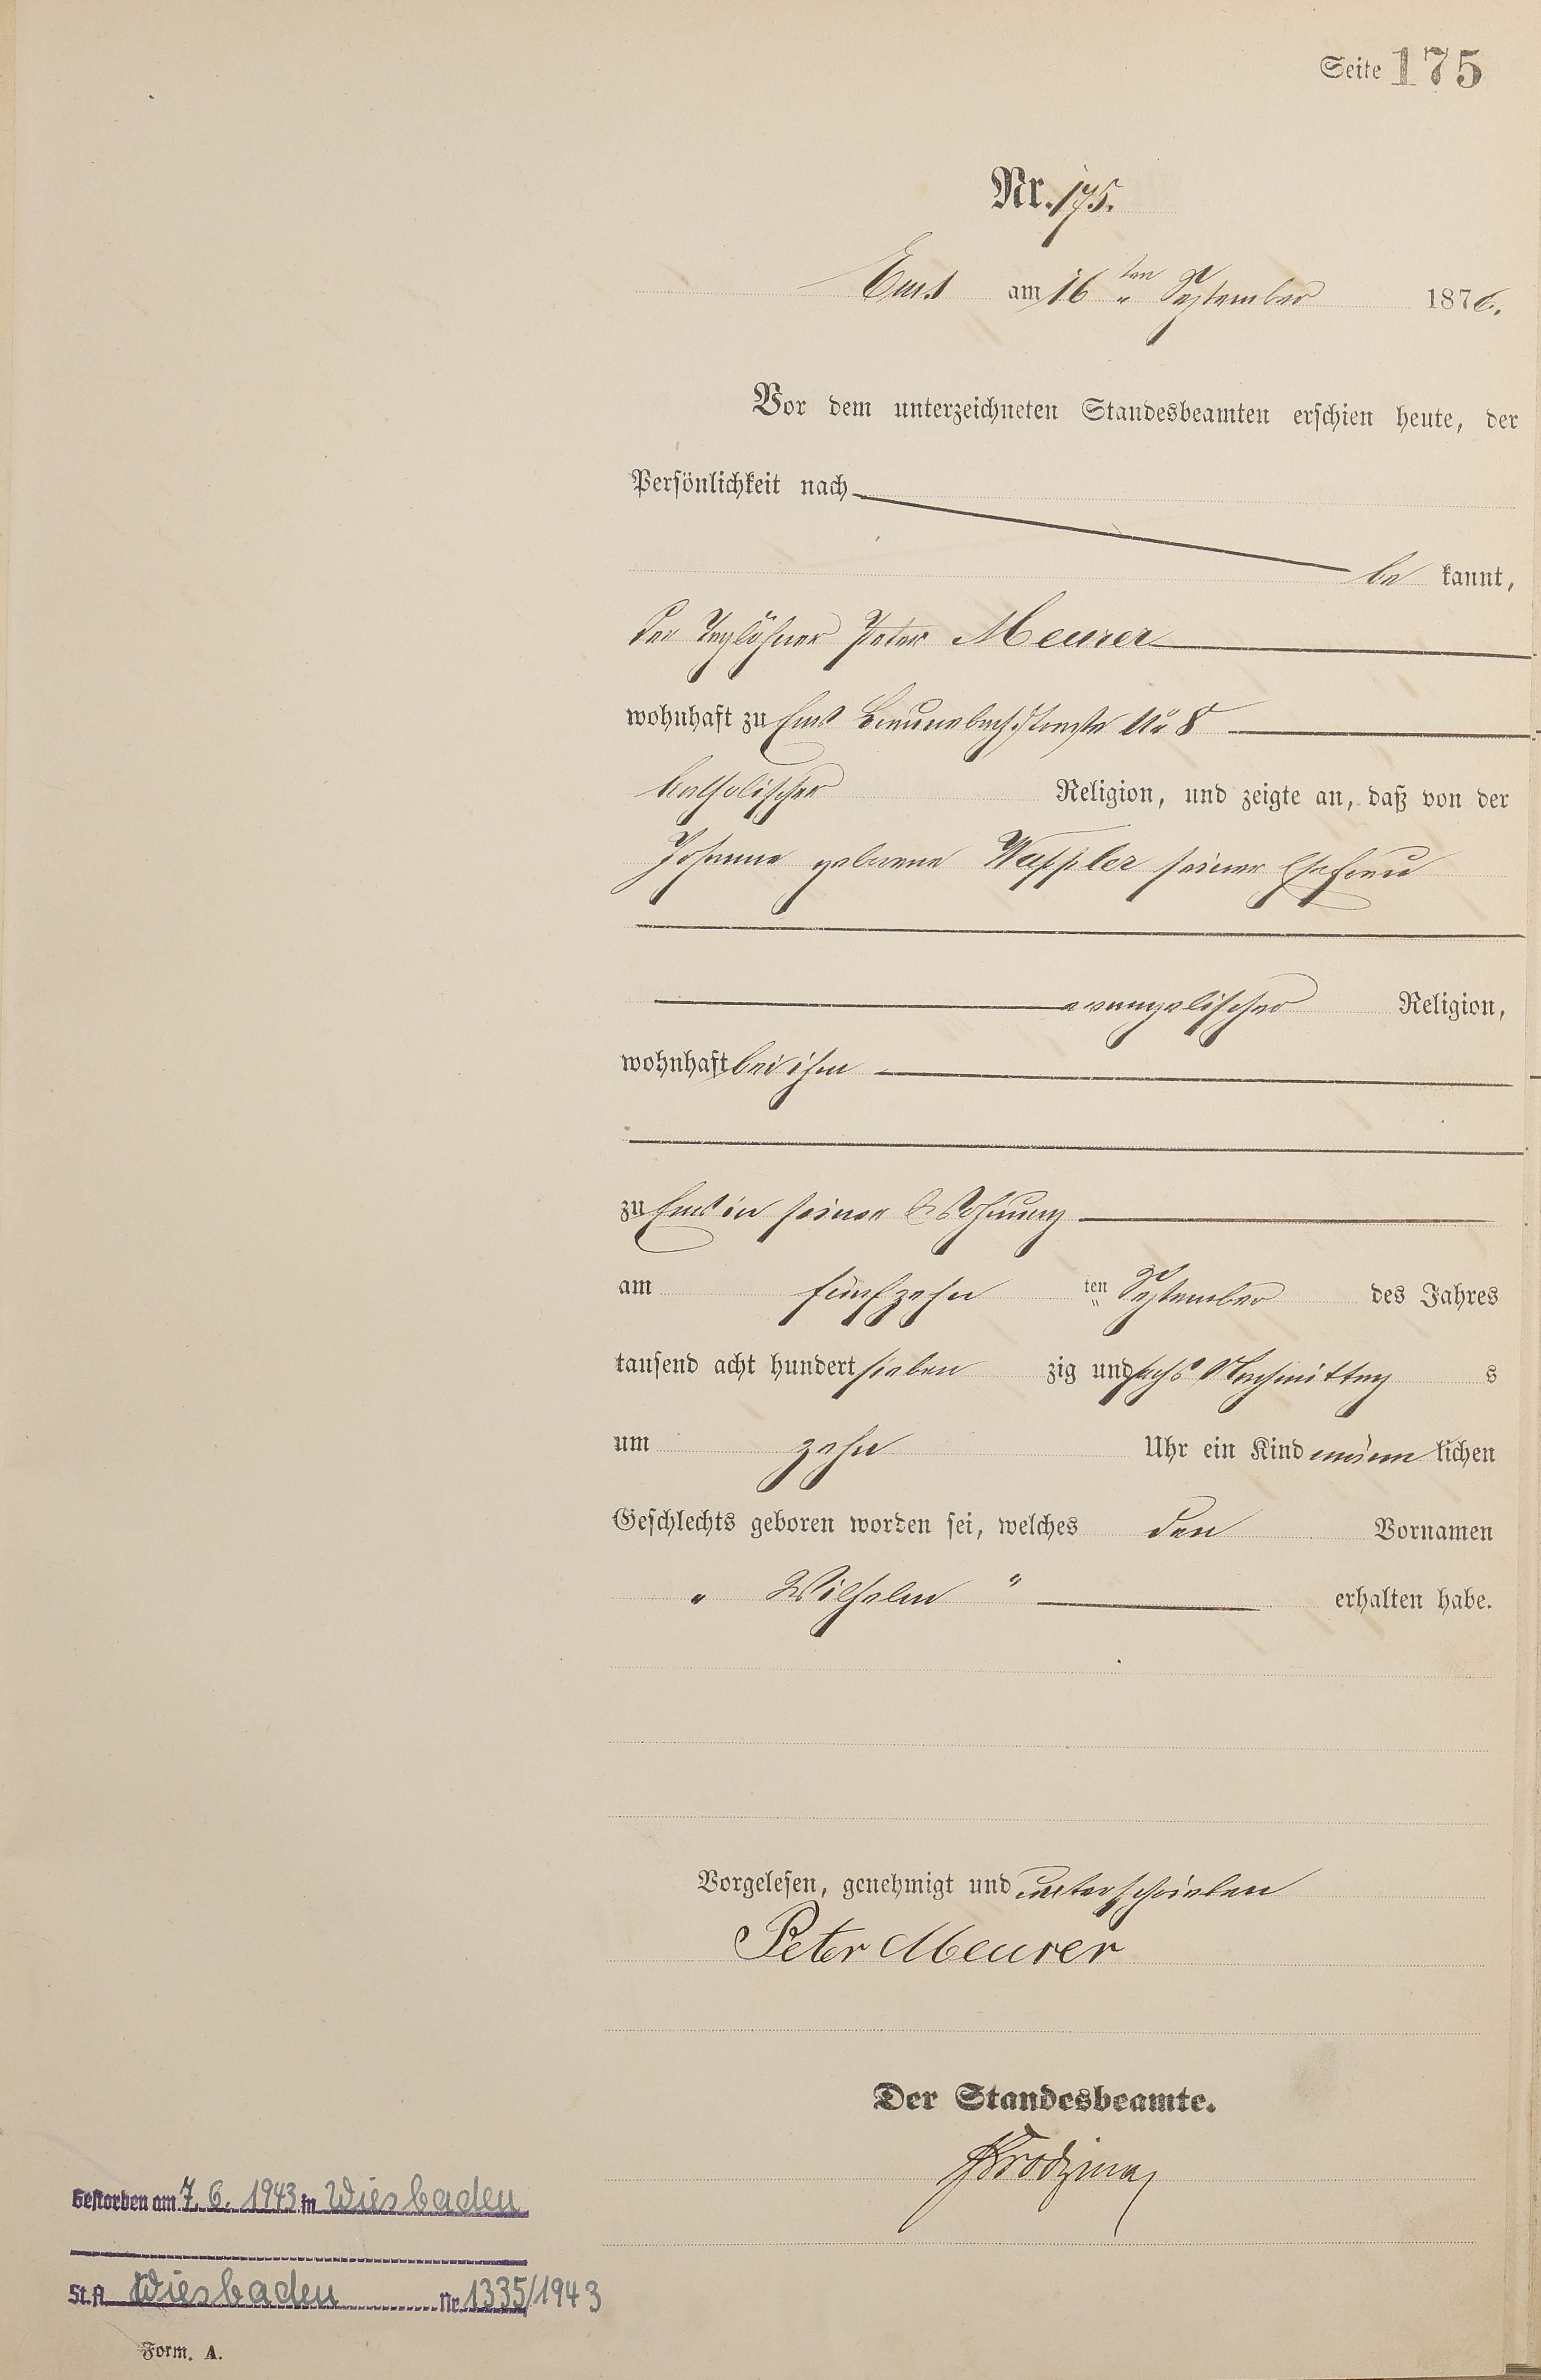 Seite 175
Nr. 175.
Ems am 16ten September 1876.
Vor dem unterzeichneten Standesbeamten erschien heute, der
Persönlichkeit nach
be kannt,
der Taglöhner Peter Meurer
wohnhaft zu Ems Braunebachstraße No 8
katholischer Religion, und zeigte an, daß von der
Johanna geborene Wappler seiner Ehefrau
evangelischer Religion,
wohnhaft bei ihm
zu Ems in seiner Wohnung
am fünfzehn ten September des Jahres
tausend acht hundert sieben zig und sechs Nachmittag s
um zehn Uhr ein Kind männ lichen
Geschlechts geboren worden sei, welches den Vornamen
„ Wilhelm “ erhalten habe.
Vorgelesen, genehmigt und unterschrieben
Peter Meurer
Der Standesbeamte.
Gestorben am 7. 6. 1943 in Wiesbaden
St. A. Wiesbaden Nr. 1335/1943
Form. A.